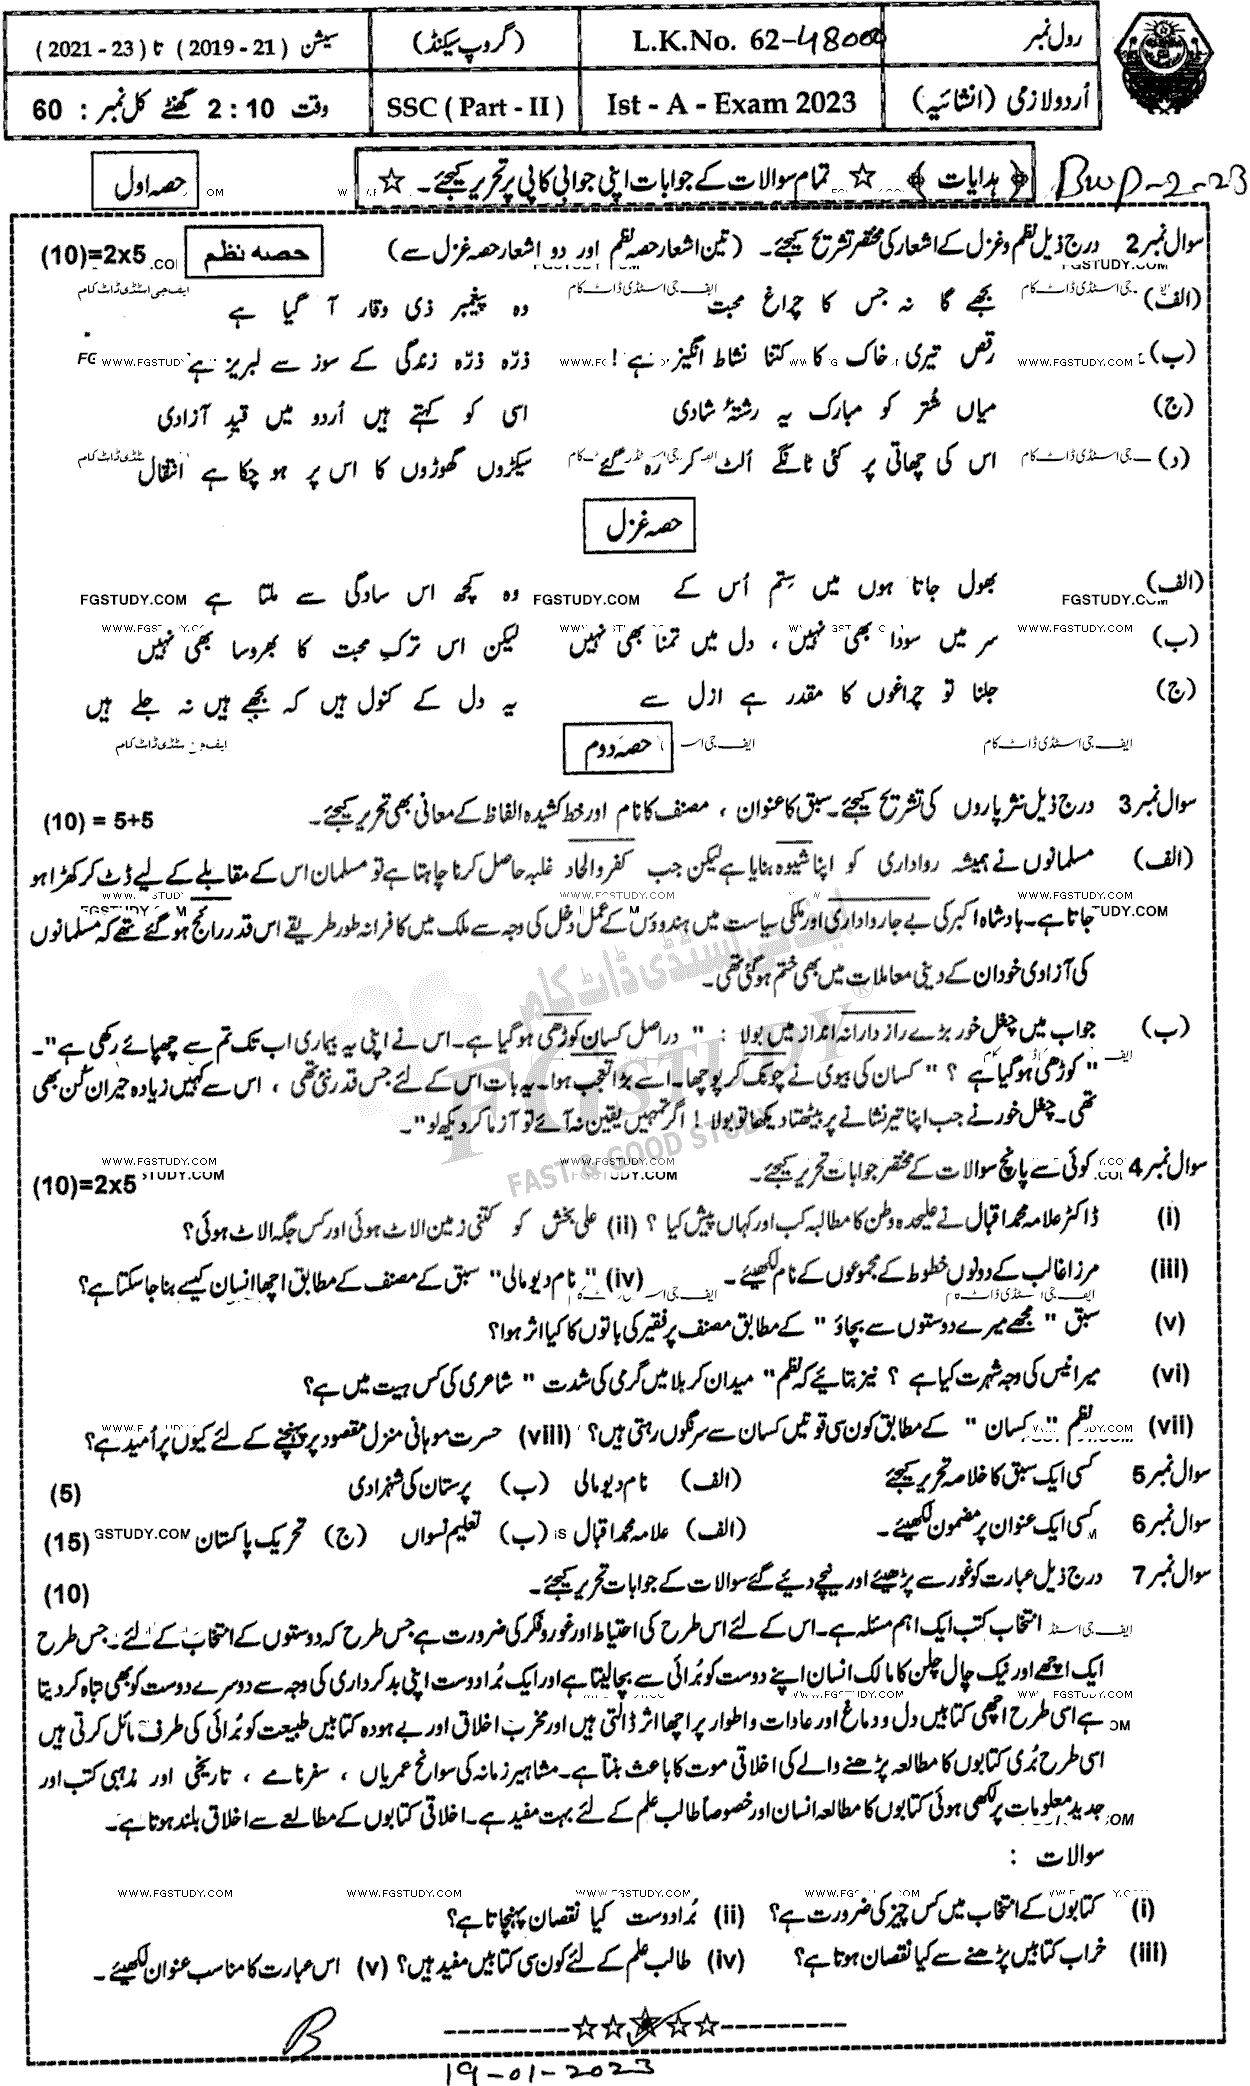 رول نمبر L.K.No. 62-48000 (گروپ سیکنڈ) سیشن (2019 - 21) تا (2021 - 23)
اُردو لازمی (انشائیہ) Ist - A - Exam 2023 SSC ( Part - II ) وقت 2 : 10 گھنٹے کل نمبر : 60
﴿ ہدایات ﴾ ☆ تمام سوالات کے جوابات اپنی جوابی کاپی پر تحریر کیجئے۔ ☆ حصہ اول
Bwp-2-23
سوال نمبر 2 درج ذیل نظم و غزل کے اشعار کی مختصر تشریح کیجئے۔ (تین اشعار حصہ نظم اور دو اشعار حصہ غزل سے) حصہ نظم (10)=2x5
(الف) بجھے گا نہ جس کا چراغِ محبت وہ پیغمبر ذی وقار آ گیا ہے
(ب) رقص تیری خاک کا کتنا نشاط انگیز ہے! ذرّہ ذرّہ زندگی کے سوز سے لبریز ہے
(ج) میاں شُتر کو مبارک یہ رشتۂ شادی اسی کو کہتے ہیں اُردو میں قیدِ آزادی
(د) اس کی چھاتی پر کئی تانگے اُلٹ کر رہ گئے سیکڑوں گھوڑوں کا اس پر ہو چکا ہے انتقال
حصہ غزل
(الف) بھول جاتا ہوں میں ستم اُس کے وہ کچھ اس سادگی سے ملتا ہے
(ب) سر میں سودا بھی نہیں ، دل میں تمنا بھی نہیں لیکن اس ترکِ محبت کا بھروسا بھی نہیں
(ج) جلنا تو چراغوں کا مقدر ہے ازل سے یہ دل کے کنول ہیں کہ بجھے ہیں نہ جلے ہیں
حصہ دوم
سوال نمبر 3 درج ذیل نثر پاروں کی تشریح کیجئے۔ سبق کا عنوان ، مصنف کا نام اور خط کشیدہ الفاظ کے معانی بھی تحریر کیجئے۔ (10) = 5+5
(الف) مسلمانوں نے ہمیشہ رواداری کو اپنا شیوہ بنایا ہے لیکن جب کفر و الحاد غلبہ حاصل کرنا چاہتا ہے تو مسلمان اس کے مقابلے کے لیے ڈٹ کر کھڑا ہو
جاتا ہے۔ بادشاہ اکبر کی بے جا رواداری اور ملکی سیاست میں ہندوؤں کے عمل دخل کی وجہ سے ملک میں کافرانہ طور طریقے اس قدر رائج ہو گئے تھے کہ مسلمانوں
کی آزادی خود ان کے دینی معاملات میں بھی ختم ہو گئی تھی۔
(ب) جواب میں چغل خور بڑے راز دارانہ انداز میں بولا : " دراصل کسان کوڑھی ہو گیا ہے۔ اس نے اپنی یہ بیماری اب تک تم سے چھپائے رکھی ہے"۔
" کوڑھی ہو گیا ہے ؟ " کسان کی بیوی نے چونک کر پوچھا۔ اسے بڑا تعجب ہوا۔ یہ بات اس کے لئے جس قدر نئی تھی ، اس سے کہیں زیادہ حیران کُن بھی
تھی۔ چغل خور نے جب اپنا تیر نشانے پر بیٹھتا دیکھا تو بولا ! اگر تمہیں یقین نہ آئے تو آزما کر دیکھ لو"۔
سوال نمبر 4 کوئی سے پانچ سوالات کے مختصر جوابات تحریر کیجئے۔ (10)=2x5
(i) ڈاکٹر علامہ محمد اقبال نے علیحدہ وطن کا مطالبہ کب اور کہاں پیش کیا ؟ (ii) علی بخش کو کتنی زمین الاٹ ہوئی اور کس جگہ الاٹ ہوئی؟
(iii) مرزا غالب کے دونوں خطوط کے مجموعوں کے نام لکھیئے۔ (iv) " نام دیو مالی" سبق کے مصنف کے مطابق اچھا انسان کیسے بنا جا سکتا ہے؟
(v) سبق " مجھے میرے دوستوں سے بچاؤ " کے مطابق مصنف پر فقیر کی باتوں کا کیا اثر ہوا؟
(vi) میر انیس کی وجہ شہرت کیا ہے ؟ نیز بتائیے کہ نظم " میدان کربلا میں گرمی کی شدت " شاعری کی کس ہیت میں ہے؟
(vii) نظم " کسان " کے مطابق کون سی قوتیں کسان سے سرنگوں رہتی ہیں؟ (viii) حسرت موہانی منزل مقصود پر پہنچنے کے لئے کیوں پر اُمید ہے؟
سوال نمبر 5 کسی ایک سبق کا خلاصہ تحریر کیجئے (الف) نام دیو مالی (ب) پرستان کی شہزادی (5)
سوال نمبر 6 کسی ایک عنوان پر مضمون لکھیئے۔ (الف) علامہ محمد اقبال (ب) تعلیم نسواں (ج) تحریک پاکستان (15)
سوال نمبر 7 درج ذیل عبارت کو غور سے پڑھیئے اور نیچے دیئے گئے سوالات کے جوابات تحریر کیجئے۔ (10)
انتخاب کتب ایک اہم مسئلہ ہے۔ اس کے لئے اس طرح کی احتیاط اور غور و فکر کی ضرورت ہے جس طرح کہ دوستوں کے انتخاب کے لئے۔ جس طرح
ایک اچھے اور نیک چال چلن کا مالک انسان اپنے دوست کو برائی سے بچا لیتا ہے اور ایک بُرا دوست اپنی بدکرداری کی وجہ سے دوسرے دوست کو بھی تباہ کر دیتا
ہے اسی طرح اچھی کتابیں دل و دماغ اور عادات و اطوار پر اچھا اثر ڈالتی ہیں اور مخرب اخلاق اور بے ہودہ کتابیں طبیعت کو بُرائی کی طرف مائل کرتی ہیں
اسی طرح بُری کتابوں کا مطالعہ پڑھنے والے کی اخلاقی موت کا باعث بنتا ہے۔ مشاہیر زمانہ کی سوانح عمریاں ، سفرنامے ، تاریخی اور مذہبی کتب اور
جدید معلومات پر لکھی ہوئی کتابوں کا مطالعہ انسان اور خصوصاً طالب علم کے لئے بہت مفید ہے۔ اخلاقی کتابوں کے مطالعے سے اخلاق بلند ہوتا ہے۔
سوالات :
(i) کتابوں کے انتخاب میں کس چیز کی ضرورت ہے؟ (ii) بُرا دوست کیا نقصان پہنچاتا ہے؟
(iii) خراب کتابیں پڑھنے سے کیا نقصان ہوتا ہے؟ (iv) طالب علم کے لئے کون سی کتابیں مفید ہیں؟ (v) اس عبارت کا مناسب عنوان لکھیئے۔
B
19-01-2023